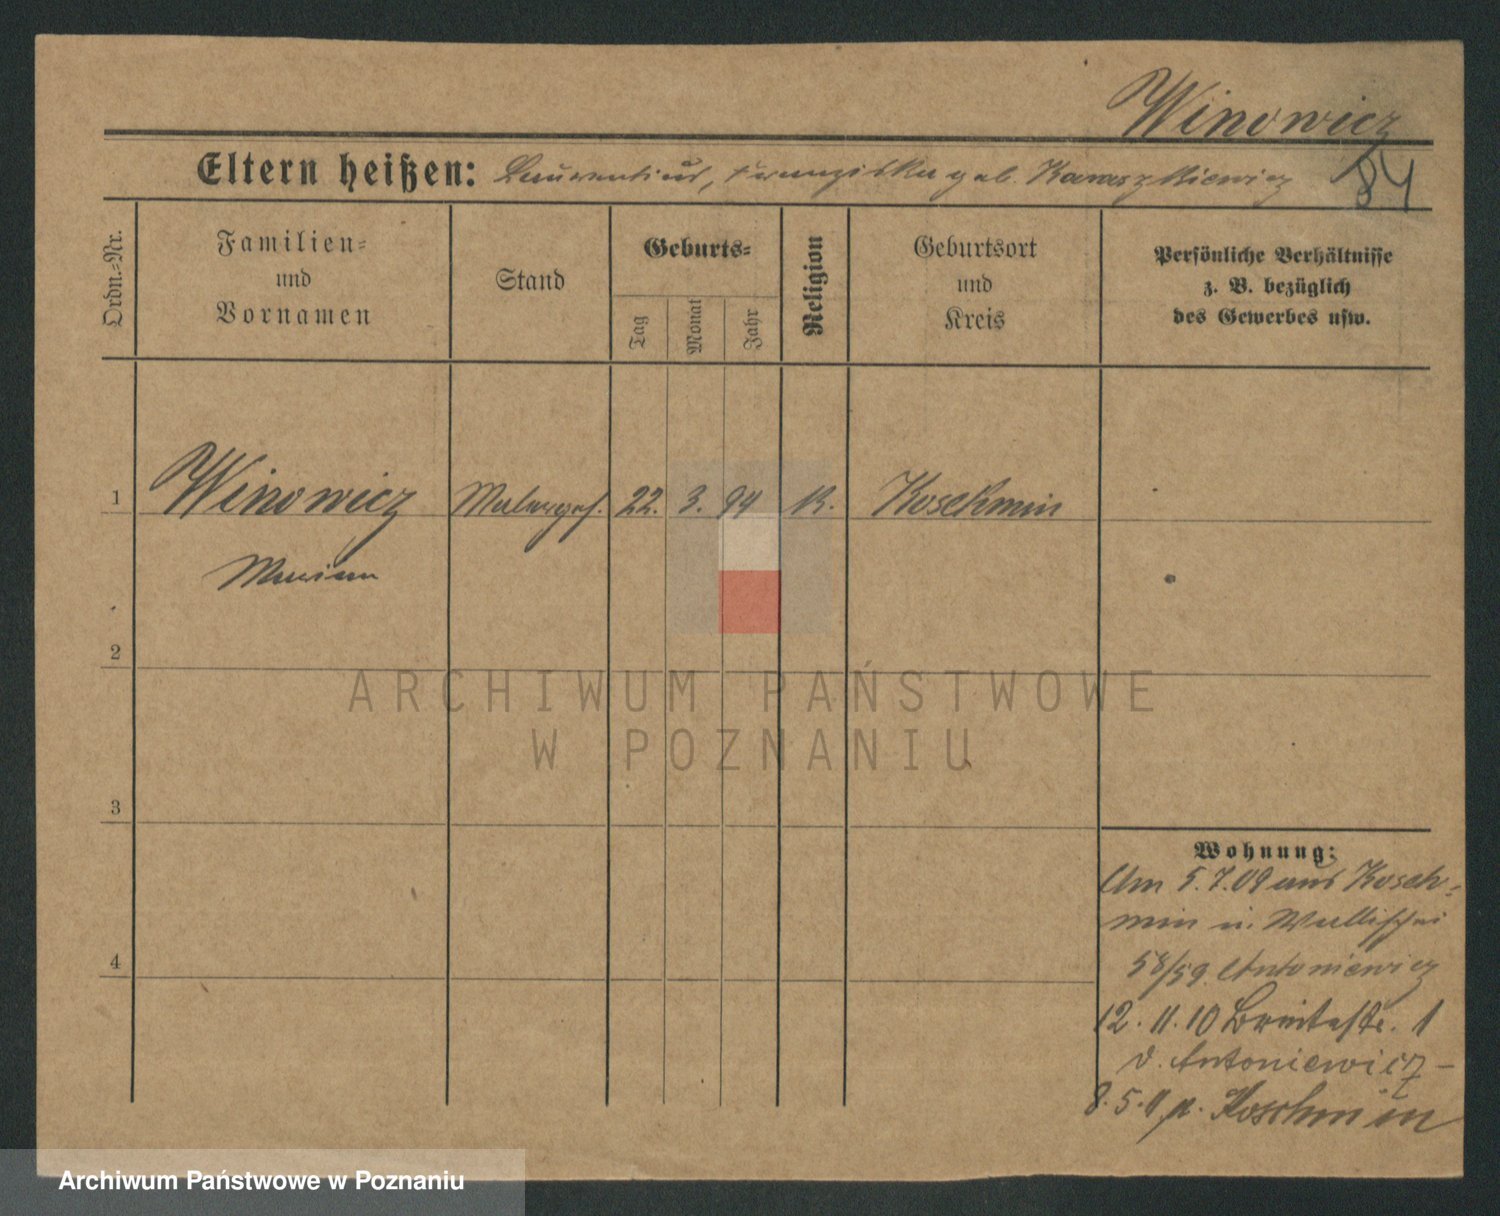 Winowicz
Eltern heißen: Laurentius, Franziska geb. Karaszkiewicz 84
Ordn.=Nr.
Familien=
und
Vornamen
Stand
Geburts=
Tag
Monat
Jahr
Religion
Geburtsort
und
Kreis
Persönliche Verhältnisse
z. B. bezüglich
des Gewerbes usw.
1 Winowicz Malerges. 22. 3. 94 K. Koschmin
Marian
2
3
4
Wohnung:
Am 5.7.09 aus Kosch=
min n. Wallischei
58/59. Antoniewicz
12.11.10 Breitestr. 1
b. Antoniewicz –
8.5.11 n. Koschmin
ARCHIWUM PAŃSTWOWE
W POZNANIU
Archiwum Państwowe w Poznaniu